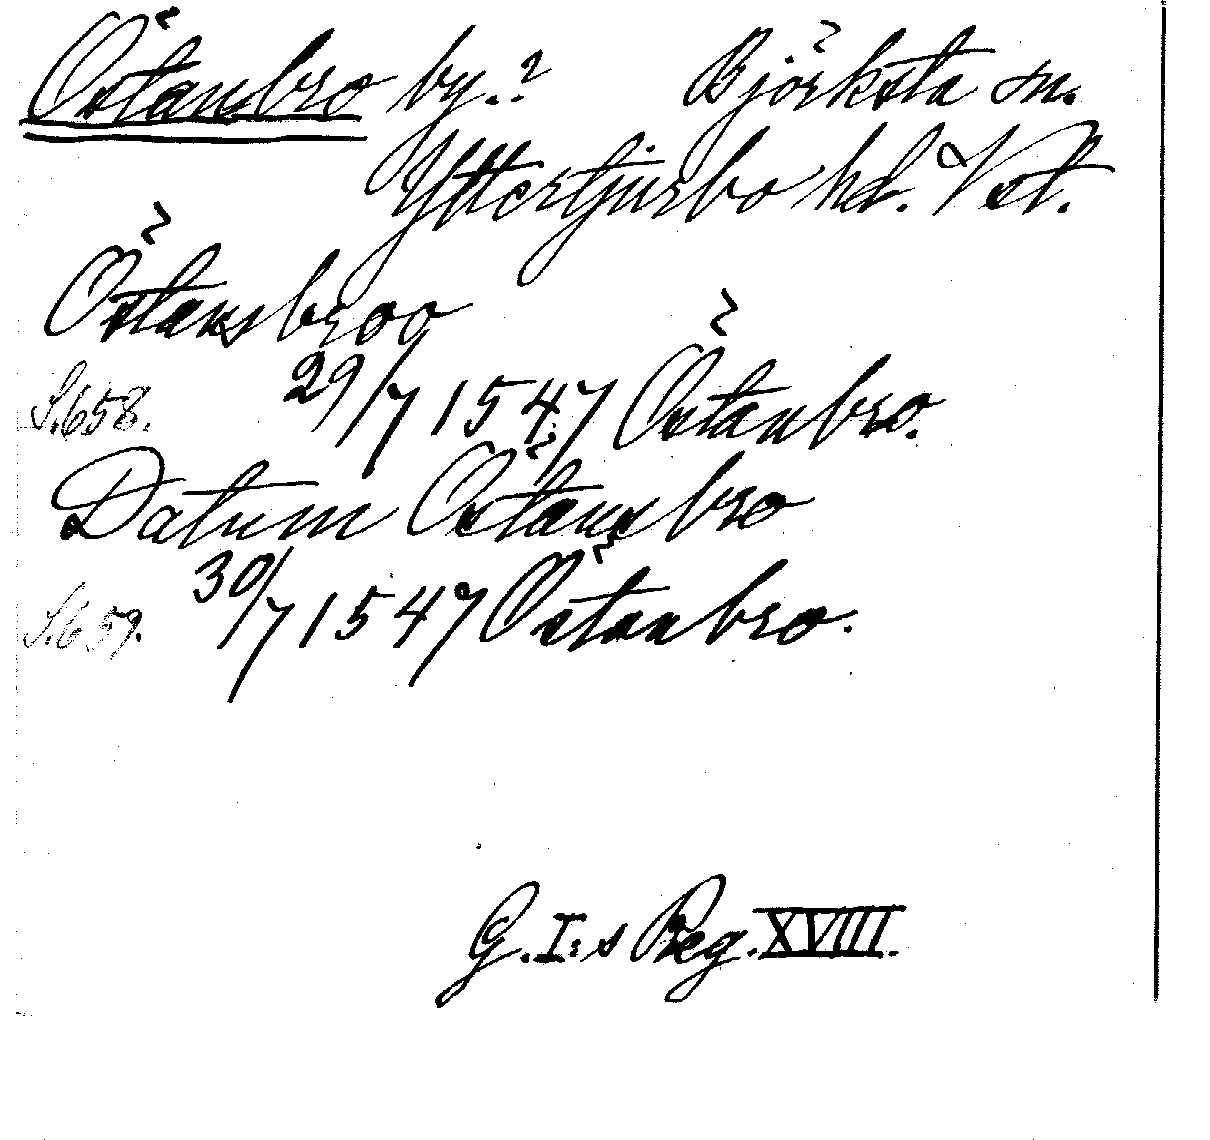 Östanbro by.? Björksta sn.
Yttertjurbo hd. Vstl.
Östansbroo
S.658. 29/7 1547 Östanbro.
Datum Östansbro
S.659. 30/7 1547 Östanbro.
G.I:s Reg. XVIII.